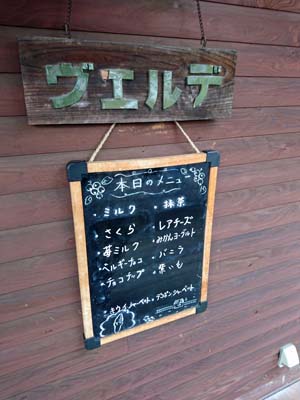 ヴェルデ
本日のメニュー
・ミルク
・さくら
・苺ミルク
・ベルギーチョコ
・チョコチップ
・抹茶
・レアチーズ
・みかんヨーグルト
・バニラ
・紫いも
・キウイシャーベット・デコポンシャーベット